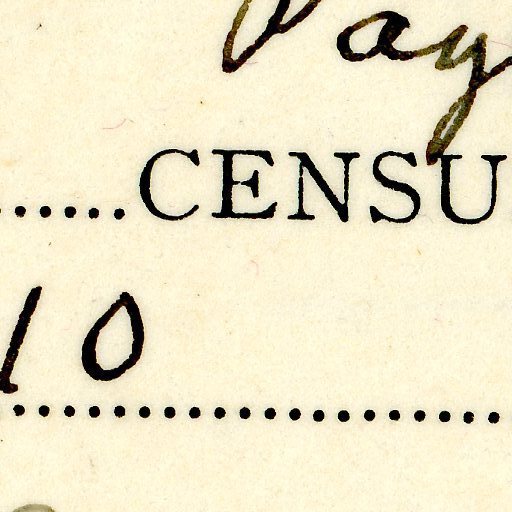 Day
......CENSU
10
....................